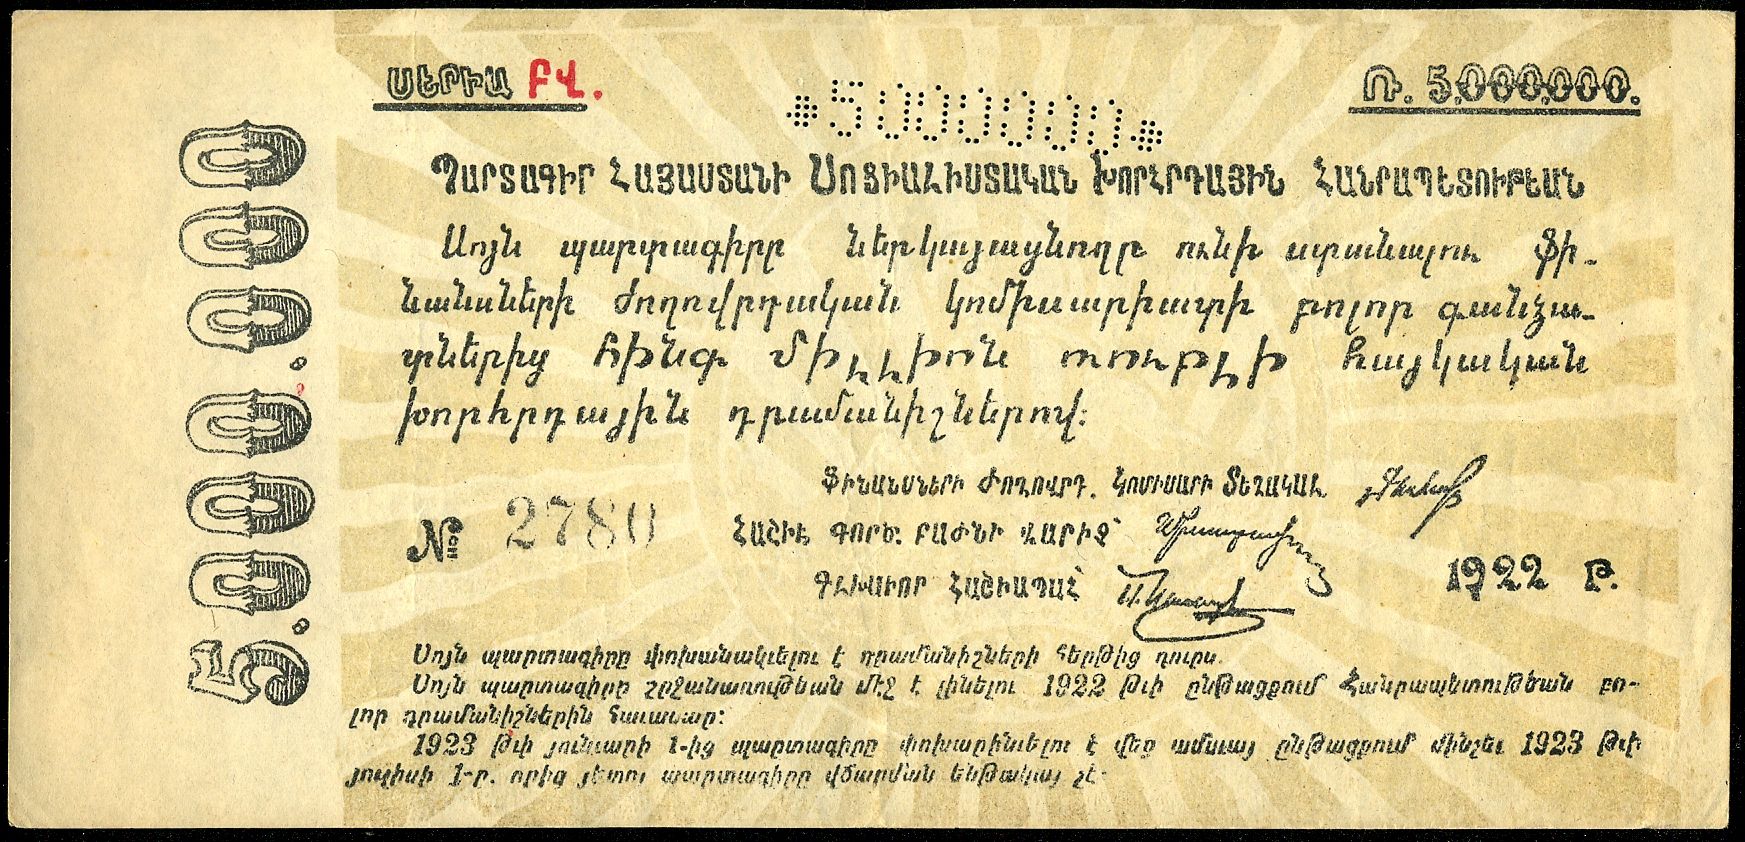 ՍԵՐԻԱ ԲՎ.
Ռ. 5.000.000.
*5000000*
5.000.000
ՊԱՐՏԱԳԻՐ ՀԱՅԱՍՏԱՆԻ ՍՈՑԻԱԼԻՍՏԱԿԱՆ ԽՈՐՀՐԴԱՅԻՆ ՀԱՆՐԱՊԵՏՈՒԹԵԱՆ
Սոյն պարտագիրը ներկայացնողը ունի ստանալու Ֆի-
նանսների Ժողովրդական կոմիսարիատի բոլոր գանձա-
տներից հինգ միլլիոն ռուբլի հայկական
խորհրդային դրամանիշներով:
ՖԻՆԱՆՍՆԵՐԻ ԺՈՂՈՎՐԴ. ԿՈՄԻՍԱՐԻ ՏԵՂԱԿԱԼ
№ 2780
ՀԱՇԻՒ ԳՈՐԾ. ԲԱԺՆԻ ՎԱՐԻՉ՝
ԳԼԽԱՒՈՐ ՀԱՇԻԱՊԱՀ՝
1922 Թ.
Սոյն պարտագիրը փոխանակւելու է դրամանիշների հերթից դուրս.
Սոյն պարտագիրը շրջանառութեան մէջ է լինելու 1922 թւի ընթացքում Հանրապետութեան բո-
լոր դրամանիշներին հաւասար:
1923 թւի յունւարի 1-ից պարտագիրը փոխարինւելու է վեց ամսւայ ընթացքում մինչեւ 1923 թւի
յուլիսի 1-ը. որից յետոյ պարտագիրը վճարման ենթակայ չէ.